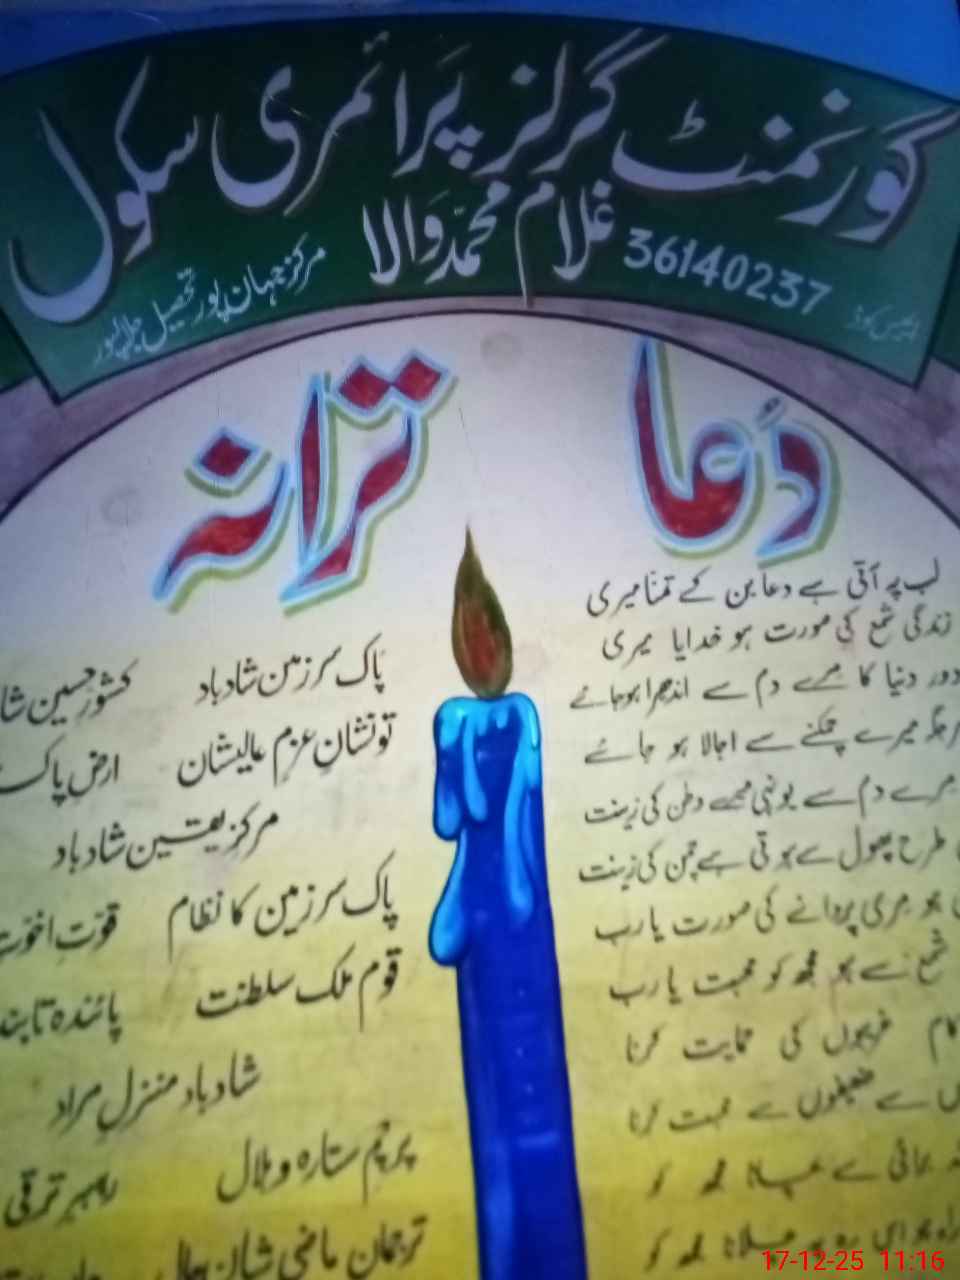 گورنمنٹ گرلز پرائمری سکول
غلام محمد والا
ایمس کوڈ 36140237
مرکز جہان پور تحصیل
دُعا
لب پہ آتی ہے دعا بن کے تمنا میری
زندگی شمع کی صورت ہو خدایا میری
دور دنیا کا مرے دم سے اندھیرا ہو جائے
ہر جگہ میرے چمکنے سے اجالا ہو جائے
مرے دم سے یونہی میرے وطن کی زینت
طرح پھول سے ہوتی ہے چمن کی زینت
ہو مری پروانے کی صورت یا رب
شمع سے ہو مجھ کو محبت یا رب
کام غریبوں کی حمایت کرنا
سے ضعیفوں سے محبت کرنا
برائی سے بچانا مجھ کو
ہو اس رہ پہ چلانا مجھ کو
ترانہ
پاک سرزمین شاد باد کشور حسین شا
تو نشانِ عزم عالیشان ارض پاک
مرکز یقین شاد باد
پاک سرزمین کا نظام قوّت اخوّت
قوم ملک سلطنت پائندہ تابند
شاد باد منزل مراد
پرچم ستارہ و ہلال رہبر ترقی
ترجمان ماضی شان حال
17-12-25 11:16